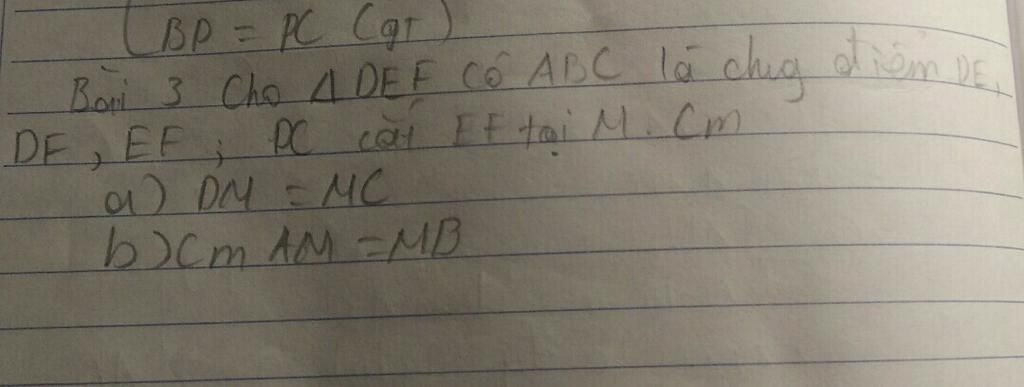 (BD = DC (gt)
Bài 3 Cho Δ DEF có ABC là trug điểm DE,
DF, EF ; DC cắt EF tại M. Cm
a) DM = MC
b) Cm AM = MB